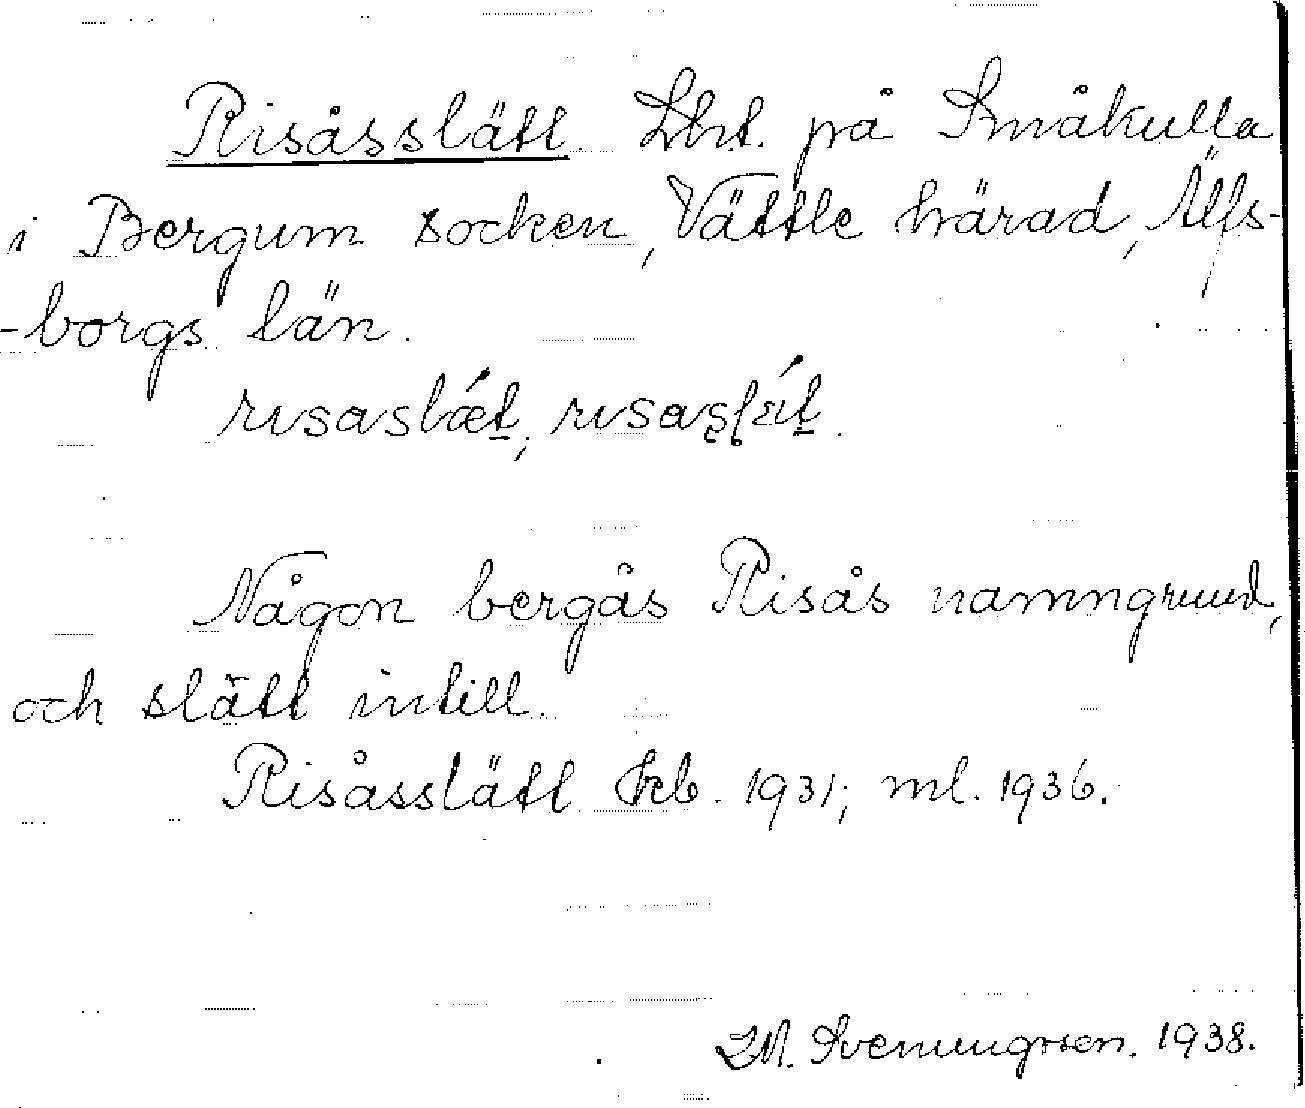 Risåsslätt. Lht. på Småkulla
i Bergum socken, Vättle härad, Älfs-
-borgs län.
rɩsaslǽt, rɩsaslǽt.
Någon bergås Risås namngrund,
och slätt intill.
Risåsslätt Jrb. 1931; ml. 1936.
Svenungsson. 1938.